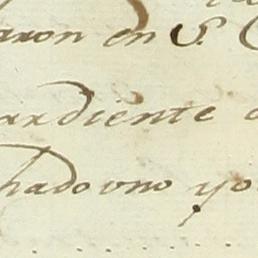 aron en S. C
ardiente
hado uno yo